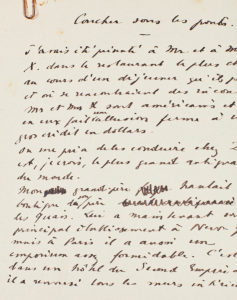 Coucher sous les ponts.
J'avais été présenté à Mr. et à M
X. dans le restaurant le plus c
au cours d'un déjeuner qu'ils
et où se rencontraient des
Mr et Mrs X sont américains et
en eux fait allusion ferme à c
gros crédit en dollars.
On me pria de les conduire chez
est, je crois, le plus grand antiqu
du monde.
Mon grand-père hantait
boutique sur les quais
les Quais. Lui a maintenant son
principal établissement à New-Y
mais à Paris il a aussi un
emporium assez formidable. C'est
dans un hôtel du Second Empire
il a renversé tous les murs intérieu